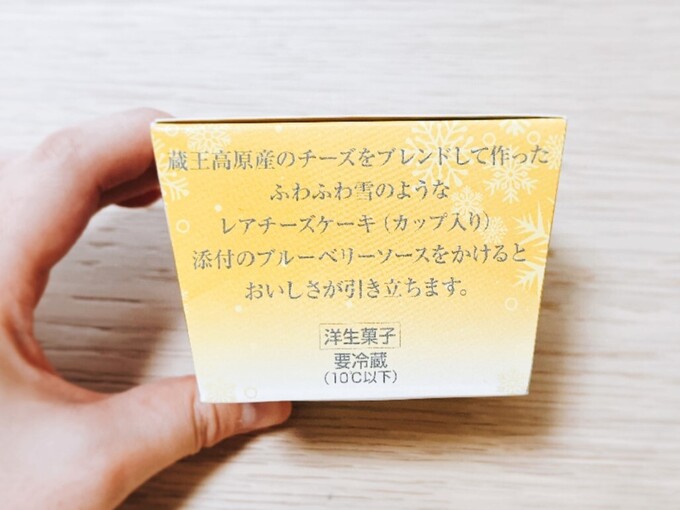 蔵王高原産のチーズをブレンドして作った
ふわふわ雪のような
レアチーズケーキ（カップ入り）
添付のブルーベリーソースをかけると
おいしさが引き立ちます。
洋生菓子
要冷蔵
（10℃以下）